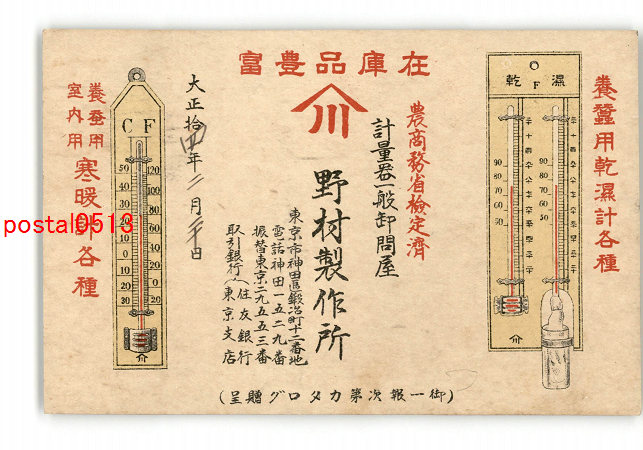 在庫品豊富
養蚕用乾濕計各種
乾 F 濕
90
80
70
60
50
90
80
70
60
50
農商務省検定済
計量器一般卸問屋
野村製作所
東京市神田區鍛冶町十二番地
電話神田一五二九番
振替東京二九五五三番
取引銀行 住友銀行東京支店
大正拾四年二月 日
C F
50
40
30
20
10
0
10
20
30
120
100
80
60
40
20
0
20
養蚕用
室内用
寒暖計各種
(御一報次第カタログ贈呈)
postal0513